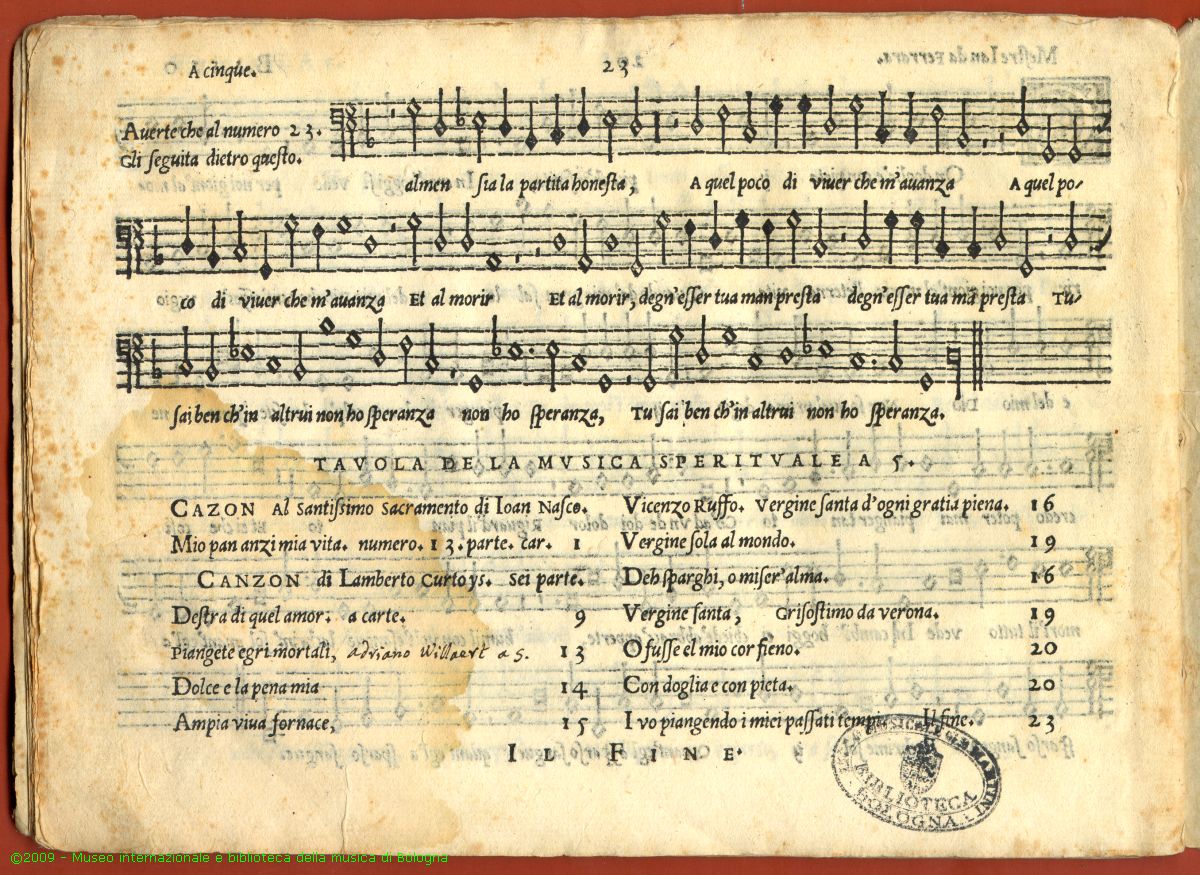 A cinque.
23
Auerte che al numero 23.
Gli seguita dietro questo.
almen sia la partita honesta, A quel poco di viuer che m'auanza A quel po-
co di viuer che m'auanza Et al morir Et al morir, degn'esser tua man presta degn'esser tua mā presta Tu-
sai ben ch'in altrui non ho speranza non ho speranza, Tu sai ben ch'in altrui non ho speranza.
TAVOLA DE LA MVSICA SPERITVALE A 5.
CAZON Al Santissimo Sacramento di Ioan Nasco.
Mio pan anzi mia vita. numero. 13. parte. car. 1
CANZON di Lamberto Curtoys. Sei parte.
Destra di quel amor. a carte. 9
Piangete egri mortali, adriano Willaert a 5. 13
Dolce e la pena mia 14
Ampia viua fornace, 15
Vicenzo Ruffo. Vergine santa d'ogni gratia piena. 16
Vergine sola al mondo. 19
Deh sparghi, o miser'alma. 16
Vergine santa, Grisostimo da verona. 19
O fusse el mio cor fieno. 20
Con doglia e con pieta. 20
I vo piangendo i miei passati tempi. Il fine. 23
IL FINE.
BIBLIOTECA
BOLOGNA
©2009 - Museo internazionale e biblioteca della musica di Bologna